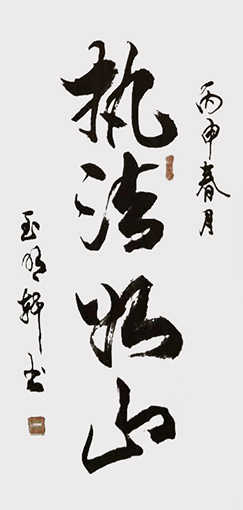 丙申春月
执法如山
玉明轩书